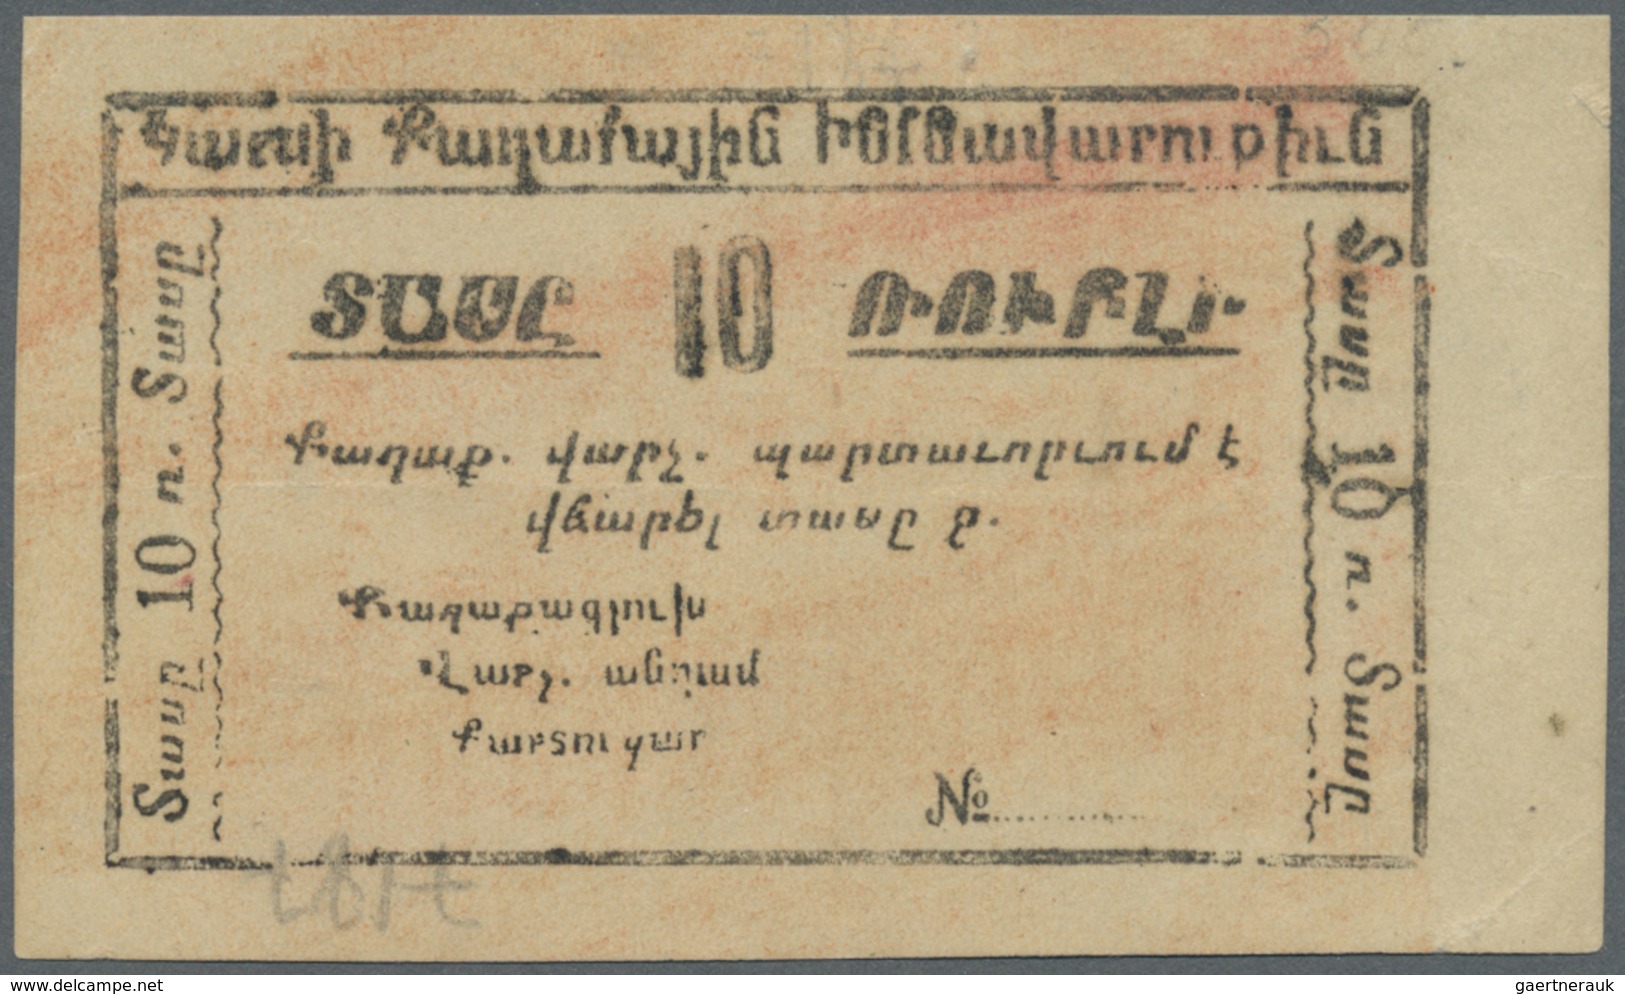 Կարսի Քաղաքային Ինքնավարութիւն
ՏԱՍԸ 10 ՌՈՒԲԼԻ
Տասը 10 ռ. Տասը
Քաղաք. վարչ. պարտաւորւում է
վճարել տասը ռ.
Քաղաքագլուխ
Վարչ. անդամ
Քարտուղար
№
Տասը 10 ռ. Տասը
delcampe.net
gaertnerauk